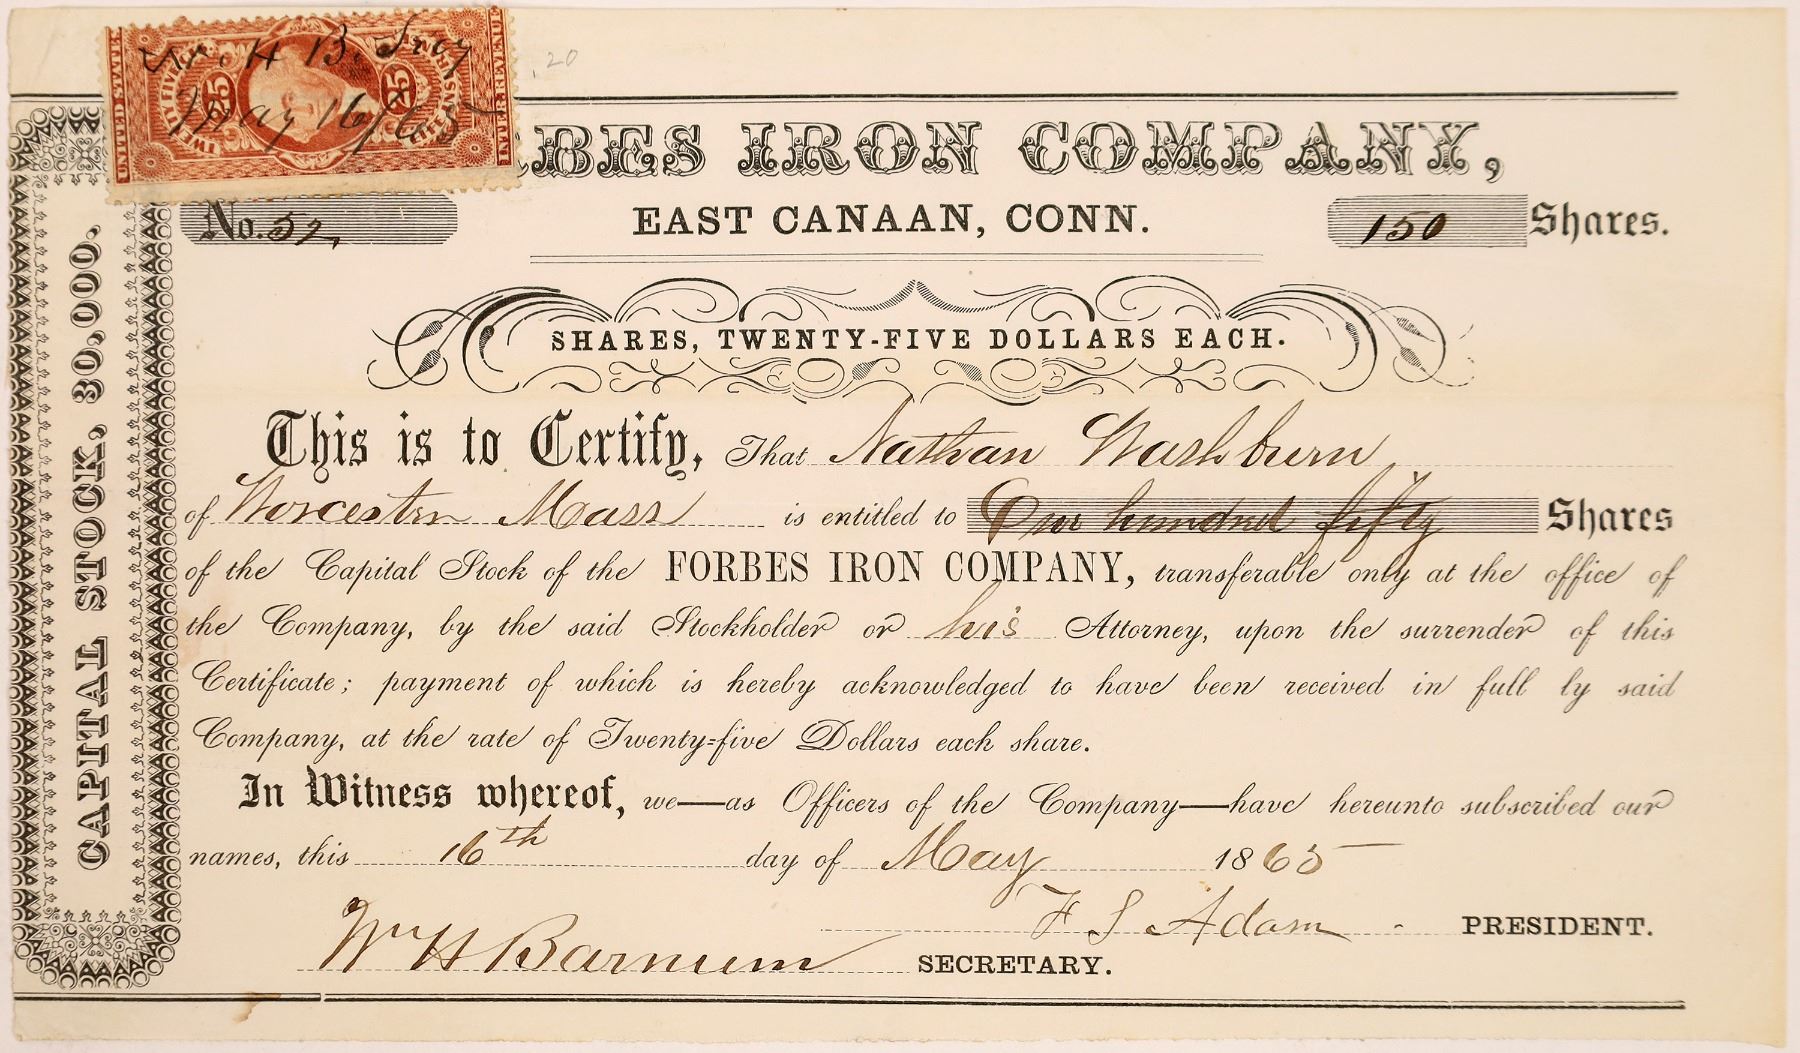 Wm. H B. Secy
May 16/65
UNITED STATES
INTER. REVENUE
TWENTY FIVE
25
25
.20
BES IRON COMPANY,
No. 52,
EAST CANAAN, CONN.
150 Shares.
CAPITAL STOCK, 30,000.
SHARES, TWENTY-FIVE DOLLARS EACH.
This is to Certify, That Nathan Washburn
of Worcester Mass is entitled to One hundred fifty Shares
of the Capital Stock of the FORBES IRON COMPANY, transferable only at the office of
the Company, by the said Stockholder or his Attorney, upon the surrender of this
Certificate; payment of which is hereby acknowledged to have been received in full ly said
Company, at the rate of Twenty-five Dollars each share.
In Witness whereof, we—as Officers of the Company—have hereunto subscribed our
names, this 16th day of May 1865
F S Adam PRESIDENT.
Wm H Barnum SECRETARY.